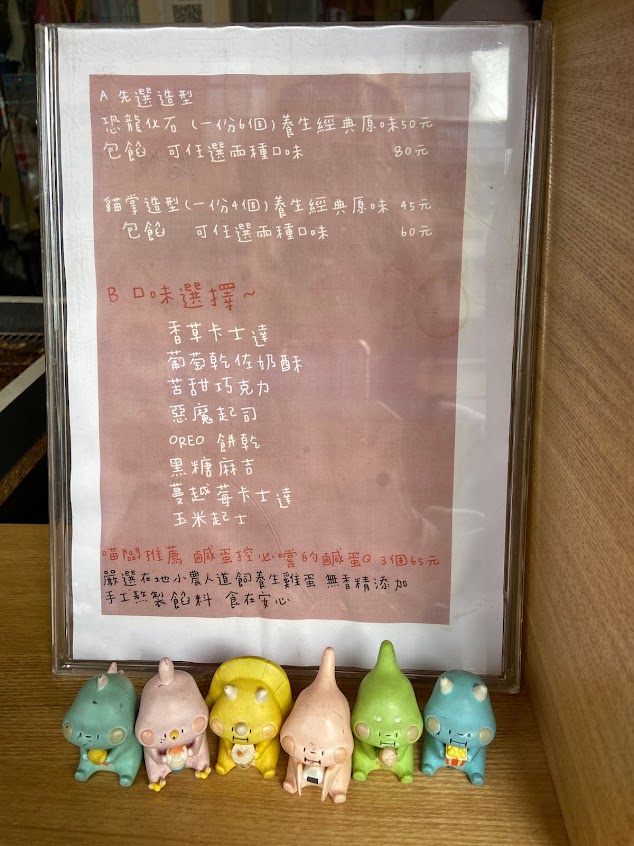 A 先選造型
恐龍化石 (一份6個) 養生經典原味50元
包餡 可任選兩種口味 80元
貓掌造型 (一份4個) 養生經典原味 45元
包餡 可任選兩種口味 60元
B 口味選擇~
香草卡士達
葡萄乾佐奶酥
苦甜巧克力
惡魔起司
OREO 餅乾
黑糖麻吉
蔓越莓卡士達
玉米起士
喵闆推薦 鹹蛋控必嚐的鹹蛋Q 3個65元
嚴選在地小農人道飼養生雞蛋 無香精添加
手工熬製餡料 食在安心